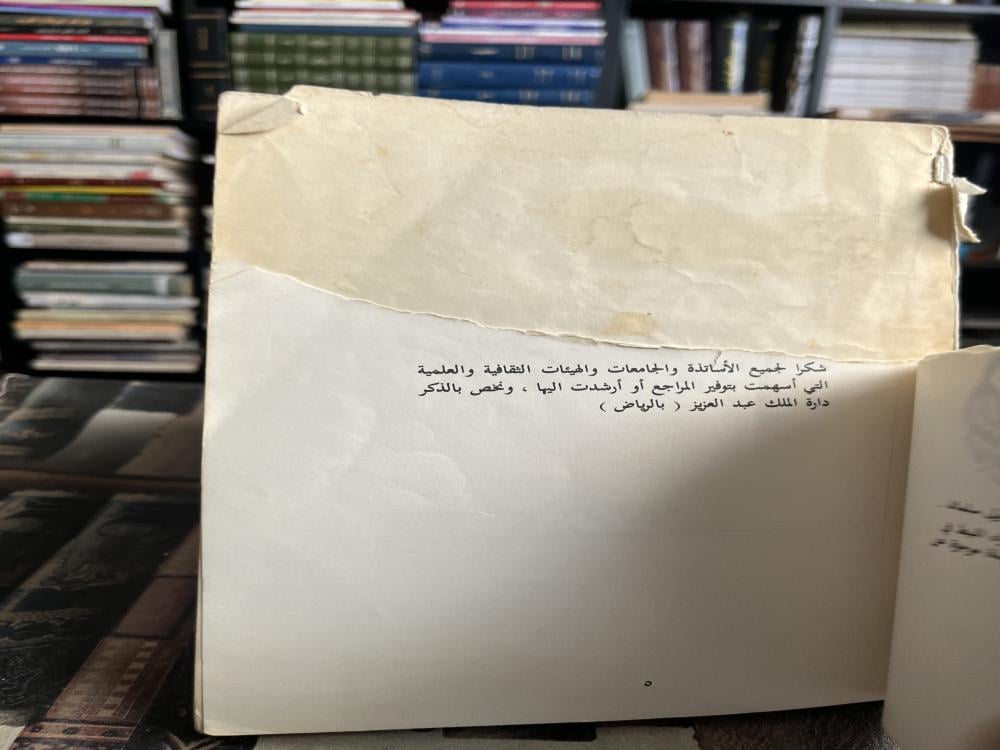 شكرا لجميع الأساتذة والجامعات والهيئات الثقافية والعلمية
التي أسهمت بتوفير المراجع أو أرشدت اليها ، ونخص بالذكر
دارة الملك عبد العزيز ( بالرياض )
٥